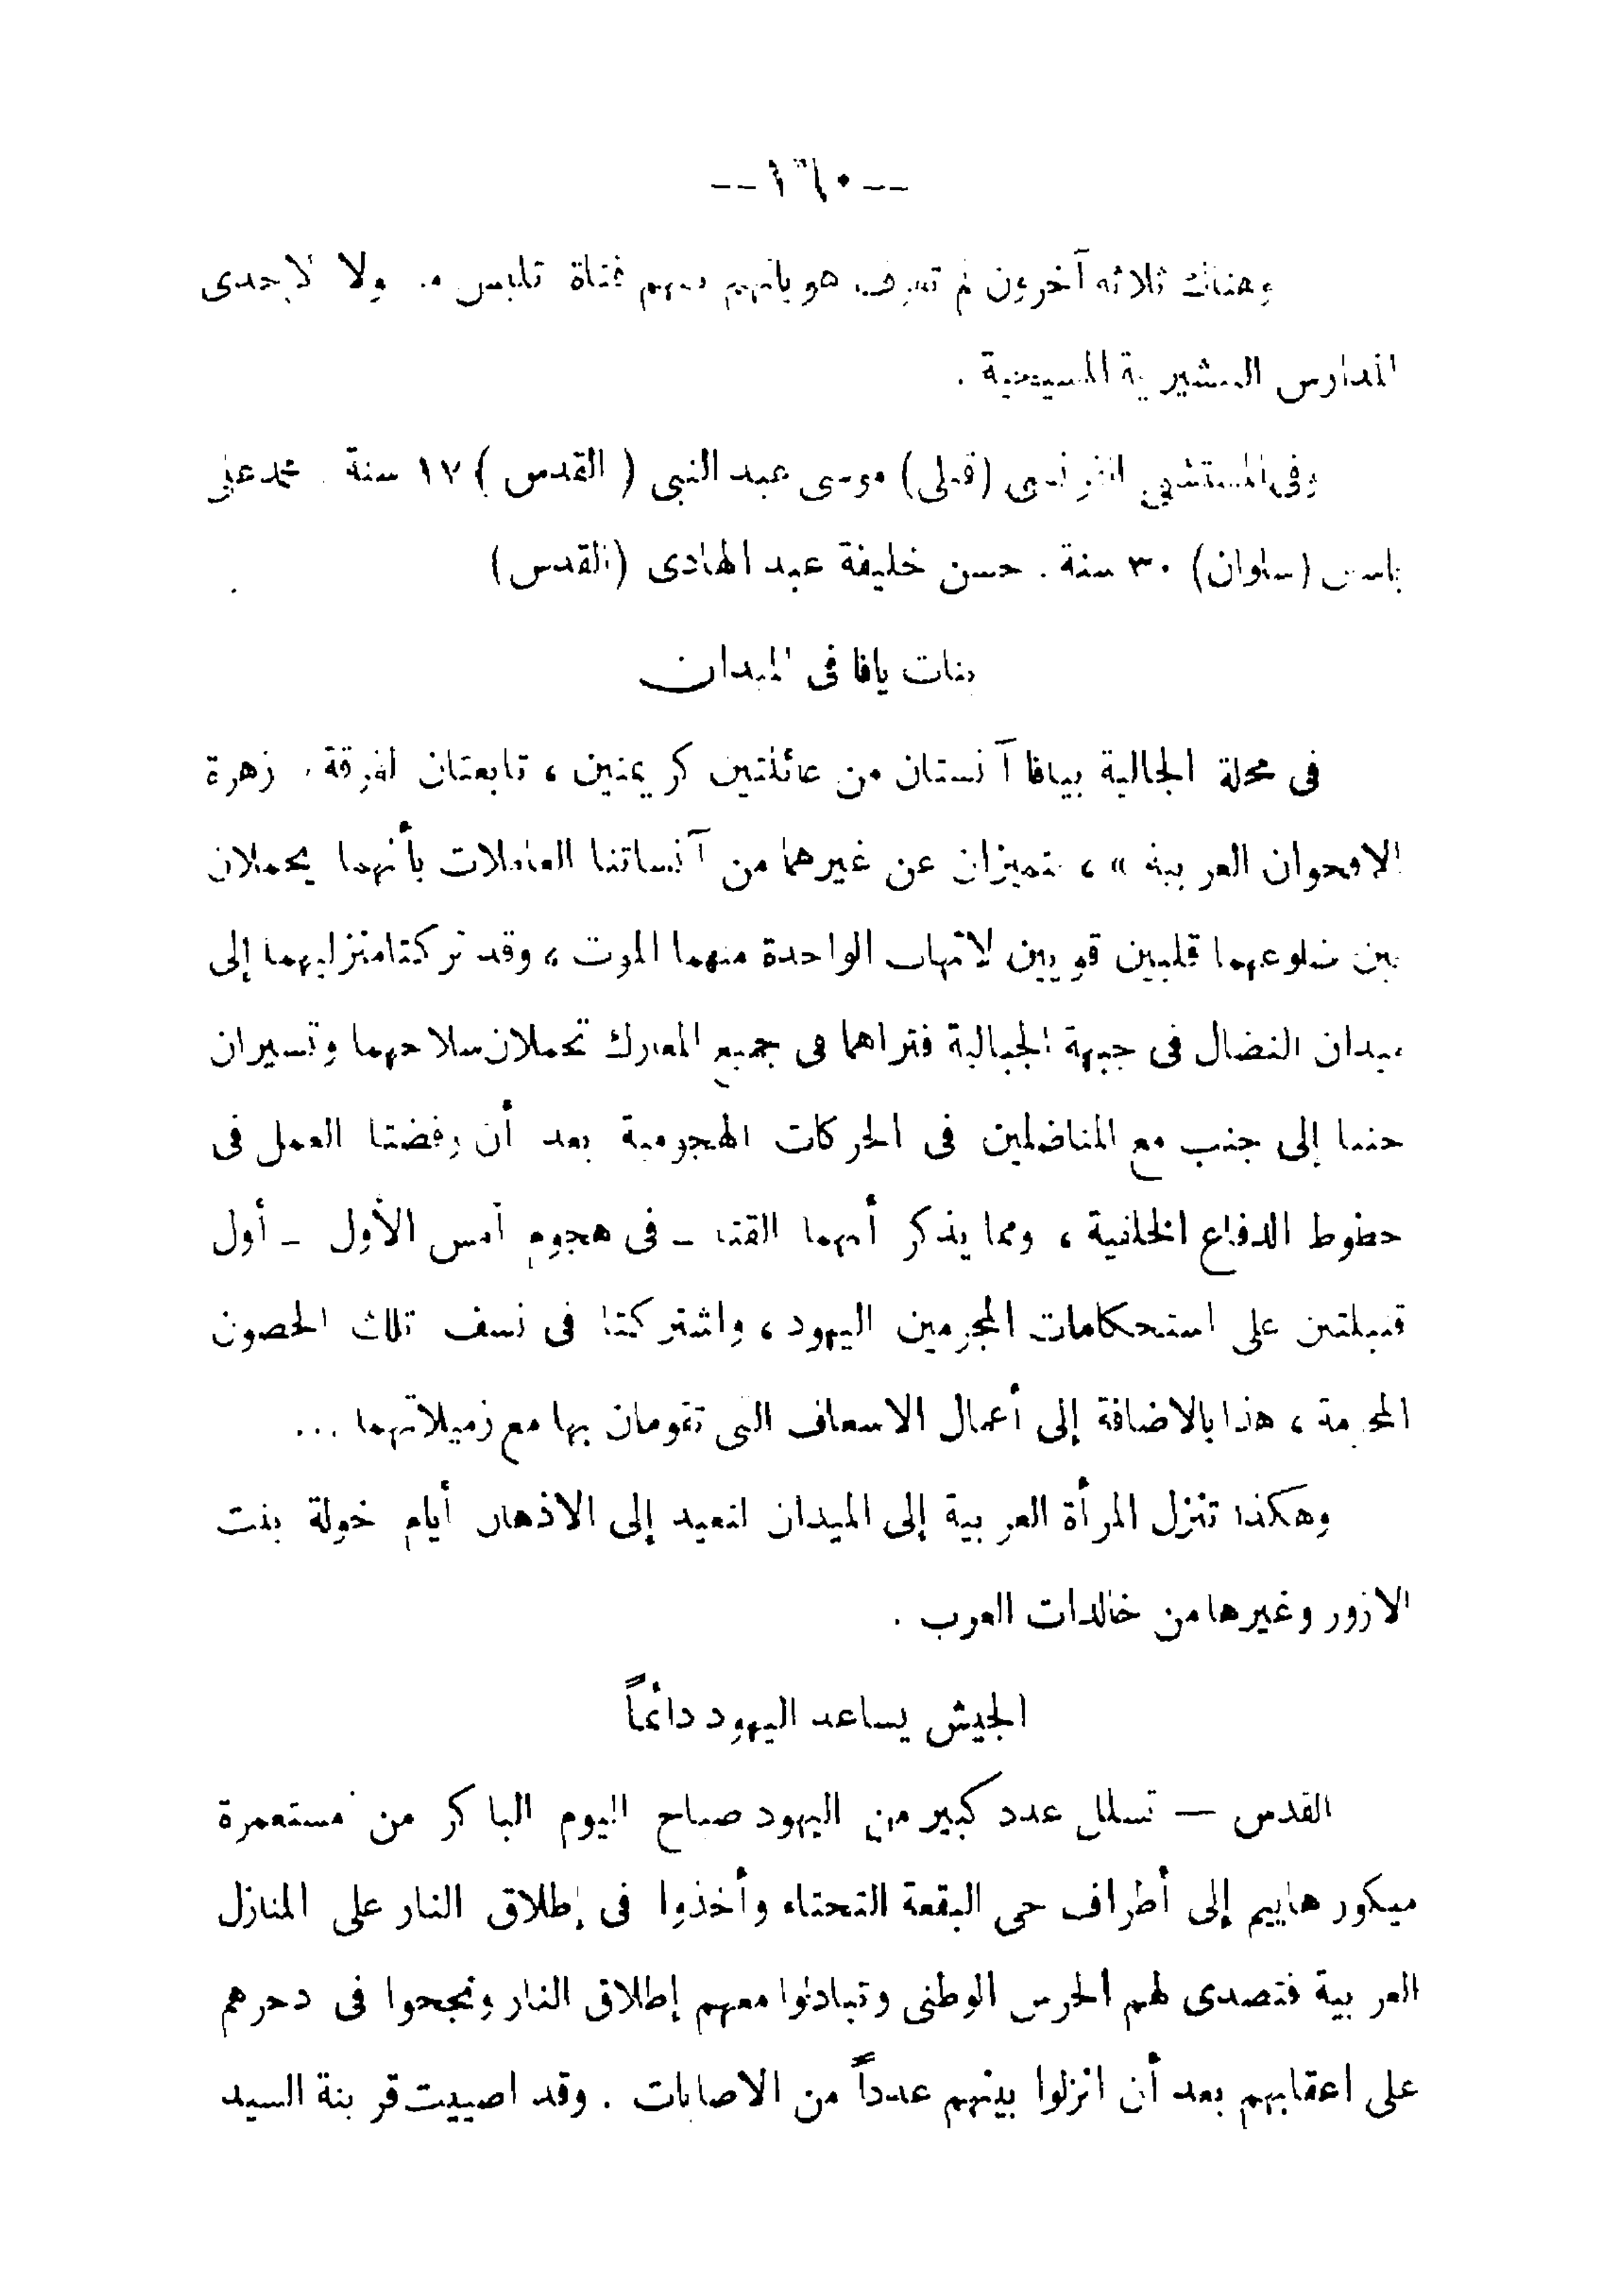 --١٦٠--
وهناك ثلاثة آخرون لم تعرف هوياتهم منهم فتاة تلبس لاحدى
المدارس التبشيرية المسيحية .
وفى المستشفى الفرنسى (قتلى) موسى عبد النبى ( القدس ) ١٧ سنة . محمد على
(سلوان) ٣٠ سنة . حسن خليفة عبد الهادى (القدس)
بنات يافا فى الميدان
فى محلة الجبالية بيافا آنستان من عائلتين كريمتين ، تابعتان لفرقة زهرة
الاقحوان العربية » ، تتميزان عن غيرهما من آنساتنا العاملات بأنهما يحملان
بين ضلوعهما قلبين قويين لاتهاب الواحدة منهما الموت ، وقد تركتا منزليهما إلى
ميدان النضال فى جبهة الجبالية فتراهما فى جميع المعارك تحملان سلاحهما وتسيران
جنبا إلى جنب مع المناضلين فى الحركات الهجومية بعد أن رفضتا العمل فى
خطوط الدفاع الخلفية ، ومما يذكر أنهما القتا – فى هجوم أمس الأول – أول
قنبلتين على استحكامات المجرمين اليهود ، واشتركتا فى نسف تلك الحصون
المجرمة ، هذا بالاضافة إلى أعمال الاسعاف التى تقومان بها مع زميلاتهما ...
وهكذا تنزل المرأة العربية إلى الميدان لتعيد إلى الاذهان أيام خولة بنت
الازور وغيرها من خالدات العرب .
الجيش يساعد اليهود دائماً
القدس — تسلل عدد كبير من اليهود صباح اليوم الباكر من مستعمرة
ميكور هاييم إلى أطراف حى البقعة التحتاء وأخذوا فى إطلاق النار على المنازل
العربية فتصدى لهم الحرس الوطنى وتبادلوا معهم إطلاق النار ونجحوا فى دحرهم
على اعقابهم بعد أن انزلوا بينهم عدداً من الاصابات . وقد اصيبت قرينة السيد